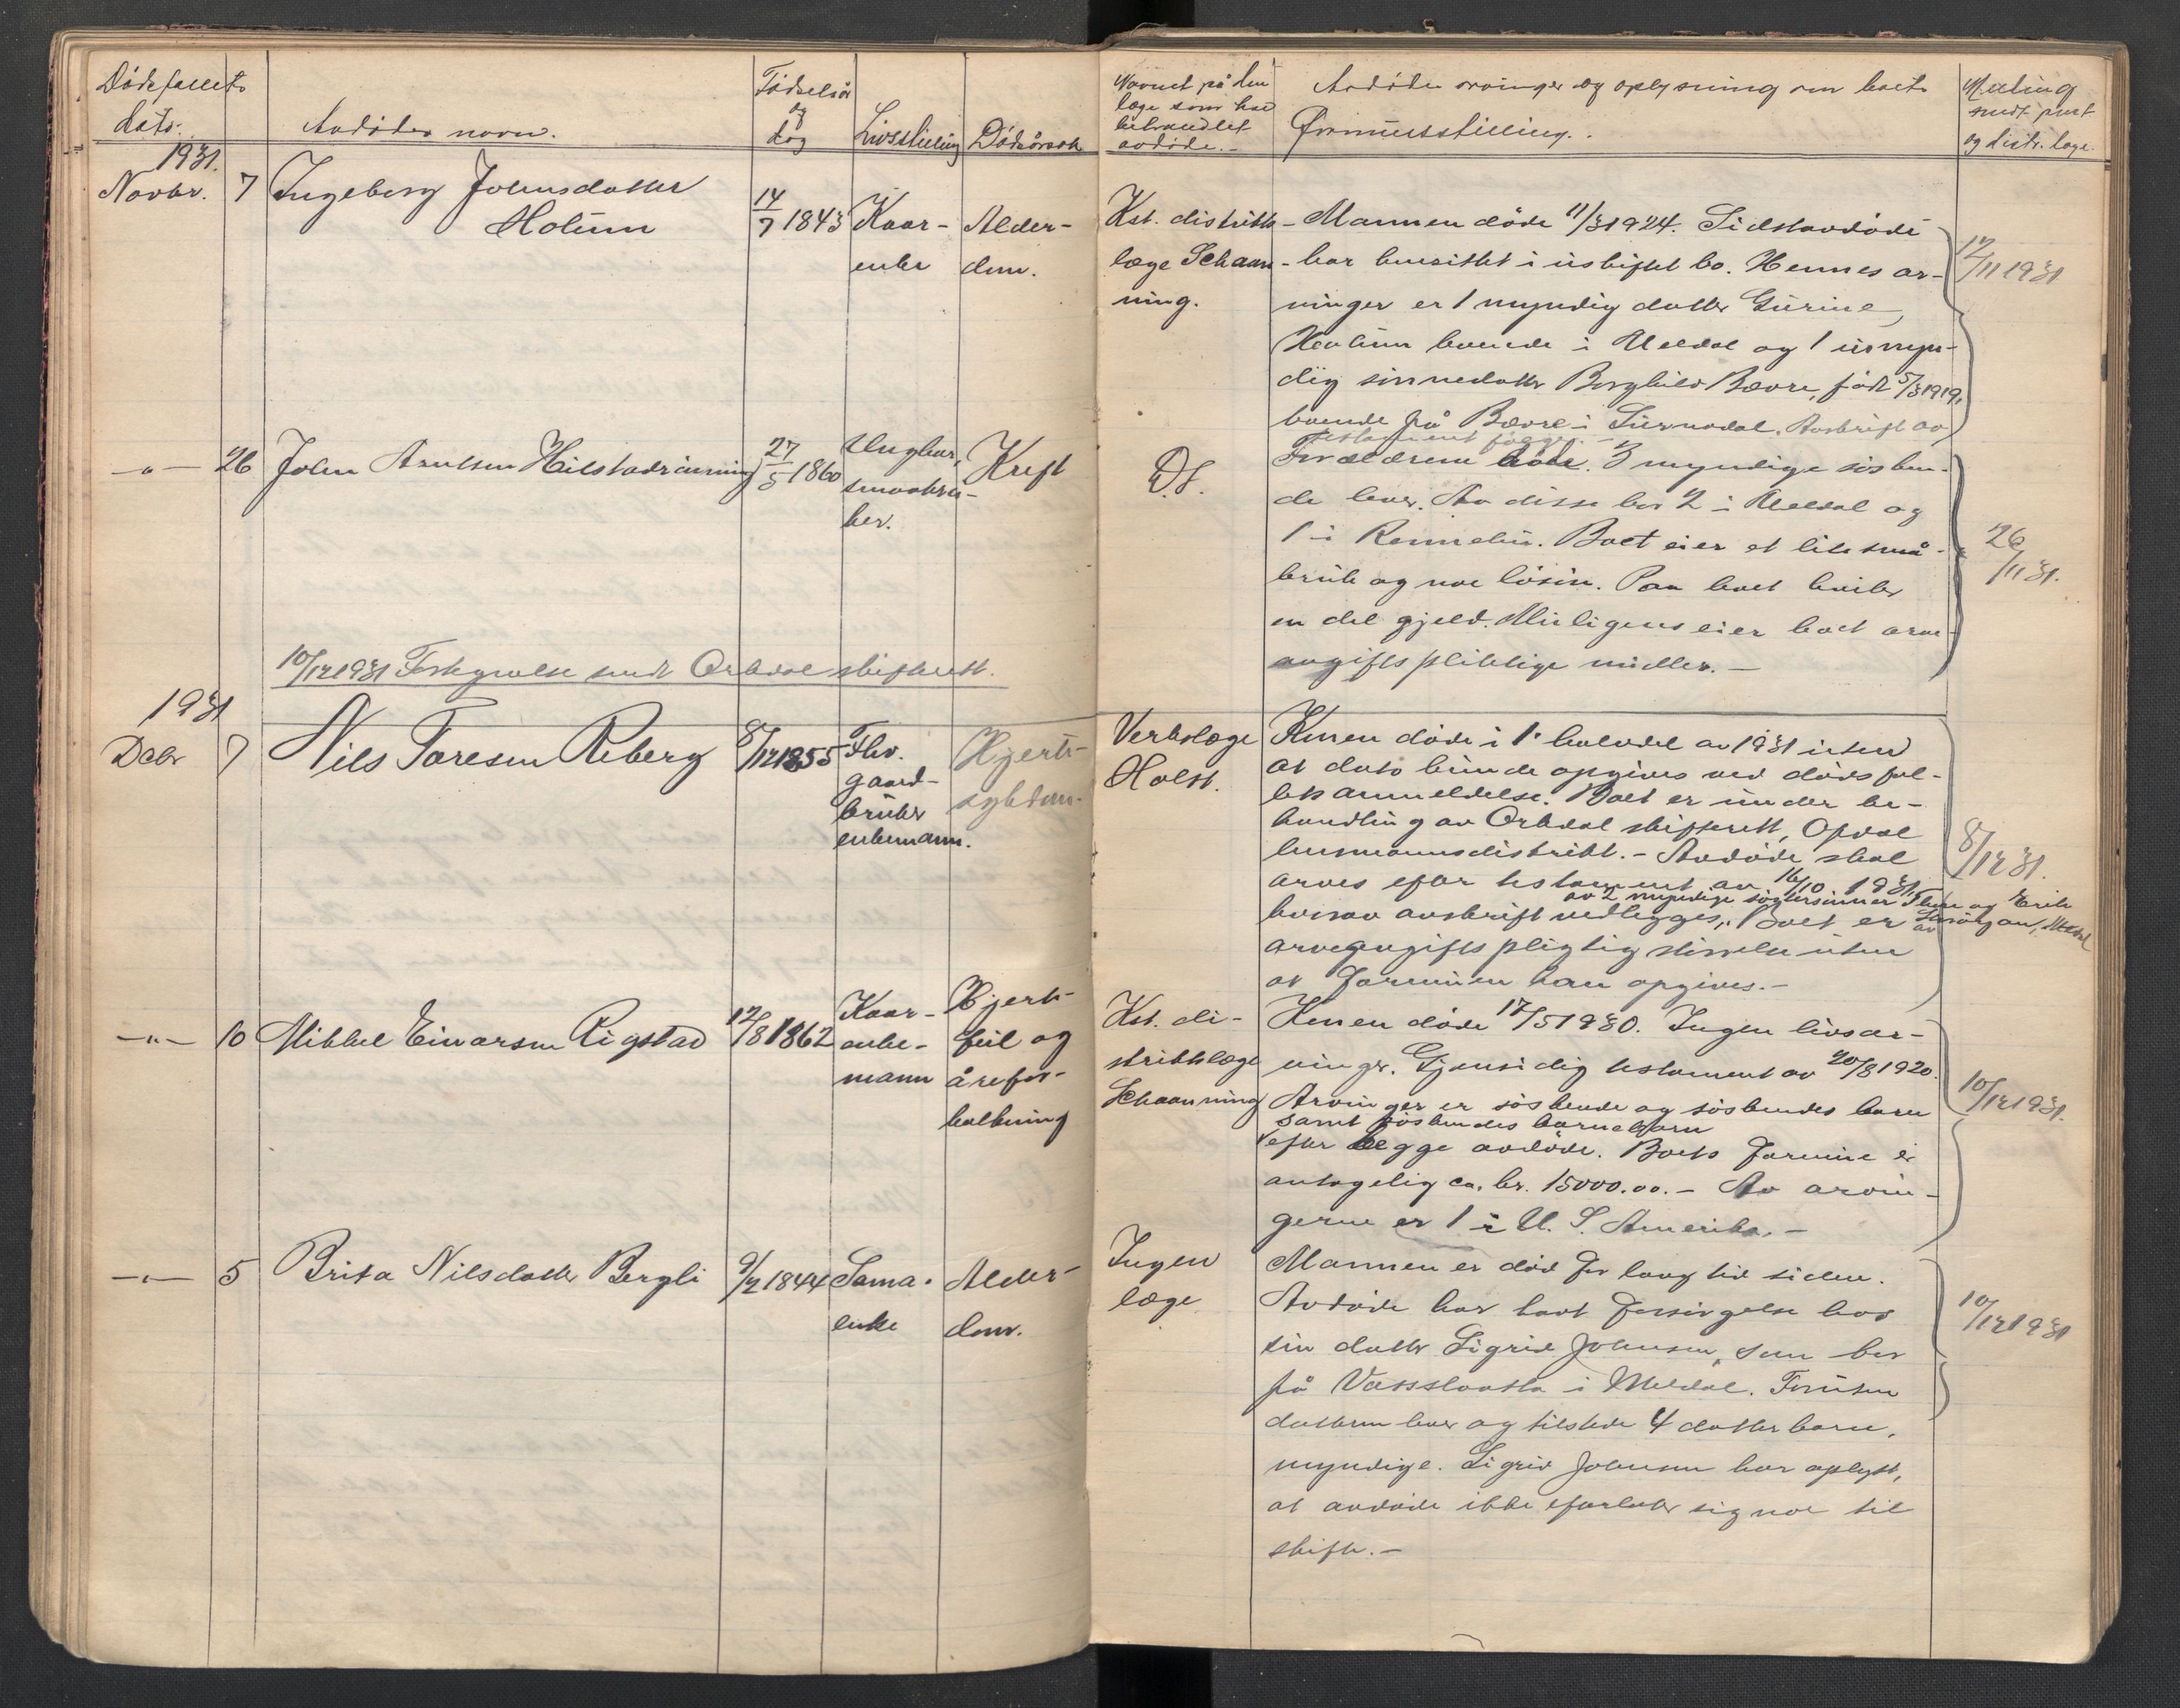 Dødsfallets
dato.
Avdødes navn.
Fødselsår
og
dag
Livsstilling
Dødsårsak
Navnet på den
læge som har
behandlet
avdøde.-
Avdødes arvinger og oplysning om boets
Formuesstilling.
Melding
sendt prest
og distr. læge.
1931.
Novbr. 7 Ingeborg Johnsdatter
Holum
14/7 1843
Kaar-
enke
Alder-
dom.
Kst. distrikts-
læge Schaan-
ning.
Mannen døde 11/3 1924. Sidstavdøde
har hensittet i uskiftet bo. Hennes ar-
vinger er 1 myndig datter Gurine
Holum boende i Meldal og 1 umyn-
dig sønnedatter Borghild Bævre, født 5/3 1919,
boende på Bævre i Surnadal. Avskrift av
testament følger.-
12/11 1931
-"- 26 John Arntsen Hilstadrønning
27/5 1860
Ungkar,
smaabru-
ker.
Kreft
D.S.
Forældrene døde. 3 myndige søsken-
de lever. Av disse bor 2 i Meldal og
1 i Rennebu. Boet eier et lite små-
bruk og noe løsøre. Paa boet hviler
en del gjeld. Muligens eier boet arve-
avgiftspliktige midler.-
26/11 31.
10/12 1931 Fortegnelse sendt Orkdal skifterett.
1931
Decbr 7 Nils Toresen Reberg
8/12 1855
Fhv.
gaard-
bruker
enkemann.
Hjerte-
sykdom-
Verkslæge
Holst.
Konen døde i 1. halvdel av 1931 uten
at dato kunde opgives ved dødsfal-
lets anmeldelse. Boet er under be-
handling av Orkdal skifterett, Opdal
lensmannsdistrikt.- Avdøde skal
arves efter testament av 16/10 1931,
av 2 myndige søstersønner og Erik
hvorav avskrift vedlegges. Boet er av
arveavgiftspligtig størrelse uten
at formuen kan opgives.-
8/12 31.
-"- 10 Mikkel Einarsen Rigstad
12/8 1862
Kaar-
enke-
mann
Hjerte-
feil og
årefor-
kalkning
Kst. di-
striktslæge
Schaanning
Konen døde 17/5 1930. Ingen livsar-
vinger. Gjensidig testament av 20/8 1920.
Arvinger er søskende og søskendes barn
samt søskendes barnebarn
efter begge avdøde. Boets formue er
antagelig ca. kr. 15000.00.- Av arvin-
gerne er 1 i U. S. Amerika.-
10/12 1931.
-"- 5 Brita Nilsdatter Bergli
9/2 1844
Sama-
enke
Alder-
dom.
Ingen
læge
Mannen er død for lang tid siden.
Avdøde har havt forsørgelse hos
sin datter Sigrid Johnsen, som bor
på Vasslootta i Meldal. Foruten
datteren lever og tilstede 4 datterbarn,
myndige. Sigrid Johnsen har oplyst,
at avdøde ikke efterlater sig noe til
skifte.-
10/12 1931